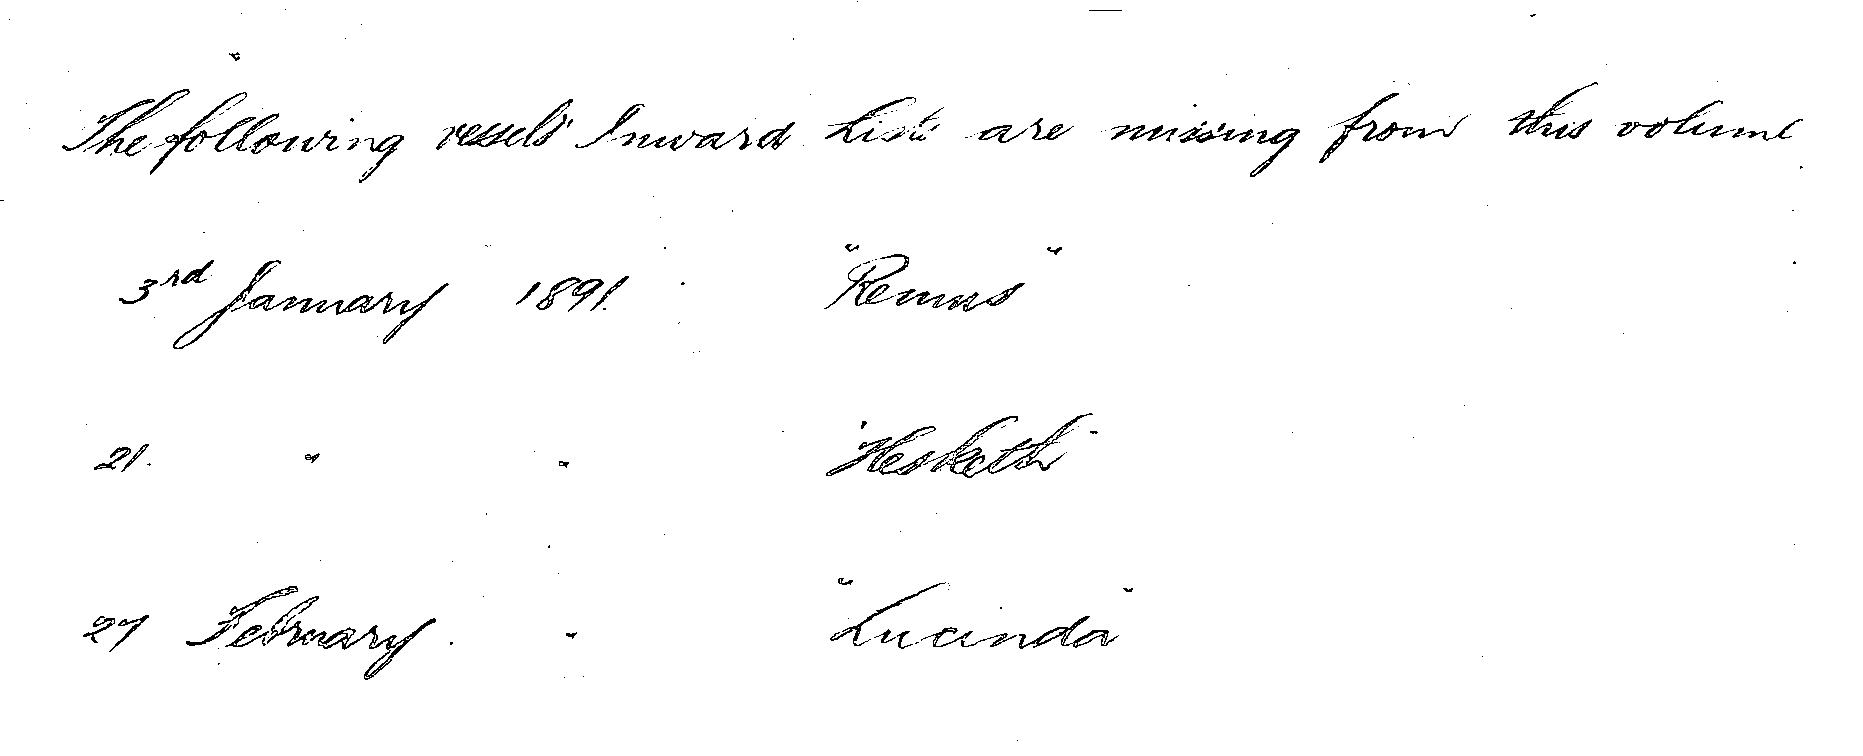 The following vessels' Inward Lists are missing from this volume
3rd January 1891. "Remus"
21. " " "Hesketh"
27 February. " "Lucinda"